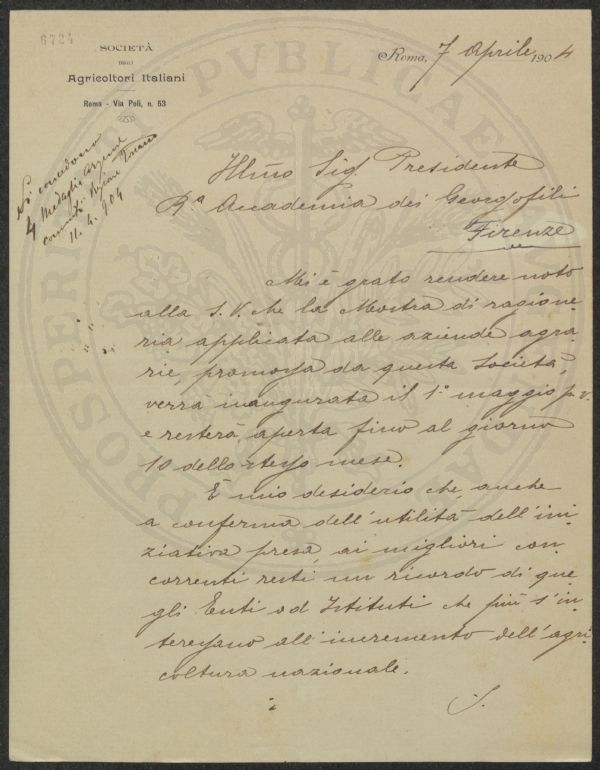 6724
SOCIETÀ
DEGLI
Agricoltori Italiani
Roma - Via Poli, n. 53
Roma, 7 Aprile 1904
Si concedono
4 Medaglie Argento
11.4.904
Illmo Sig. Presidente
Ra Accademia dei Georgofili
Firenze
Mi è grato rendere noto
alla S. V. che la Mostra di ragione-
ria applicata alle aziende agra-
rie, promossa da questa Società,
verrà inaugurata il 1° maggio p.v.
e resterà aperta fino al giorno
10 dello stesso mese.
È mio desiderio che, anche
a conferma dell'utilità dell'ini-
ziativa presa, ai migliori con-
correnti resti un ricordo di que-
gli Enti od Istituti che più s'in-
teressano all'incremento dell'agri-
coltura nazionale.
PROSPERITATI PVBLICAE